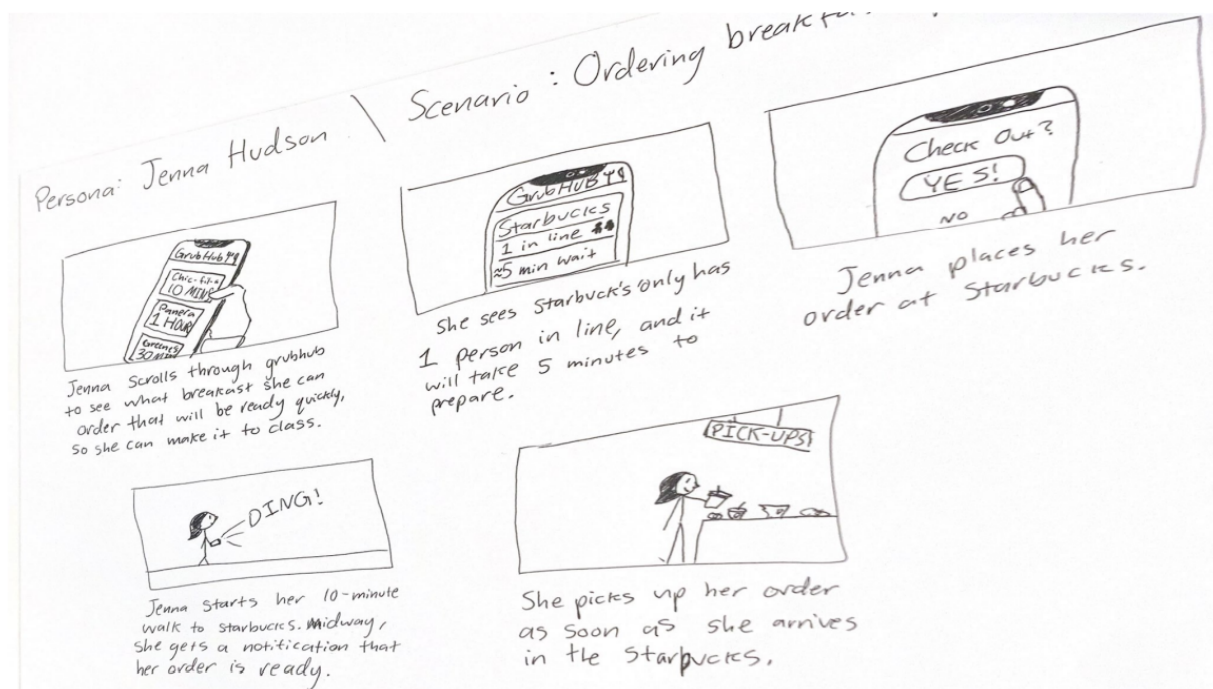 Persona: Jenna Hudson \ Scenario: Ordering
GrubHub
Chic-fil-a
10 MINS
Panera
1 HOUR
Greenes
30
Jenna scrolls through grubhub
to see what breakast she can
order that will be ready quickly,
so she can make it to class.
GrubHUB
Starbucks
1 in line
≈5 min wait
She sees Starbuck's only has
1 person in line, and it
will take 5 minutes to
prepare.
Check Out?
YES!
NO
Jenna places her
order at Starbucks.
DING!
Jenna starts her 10-minute
walk to starbucks. Midway,
she gets a notification that
her order is ready.
PICK-UPS
She picks up her order
as soon as she arrives
in the Starbucks.